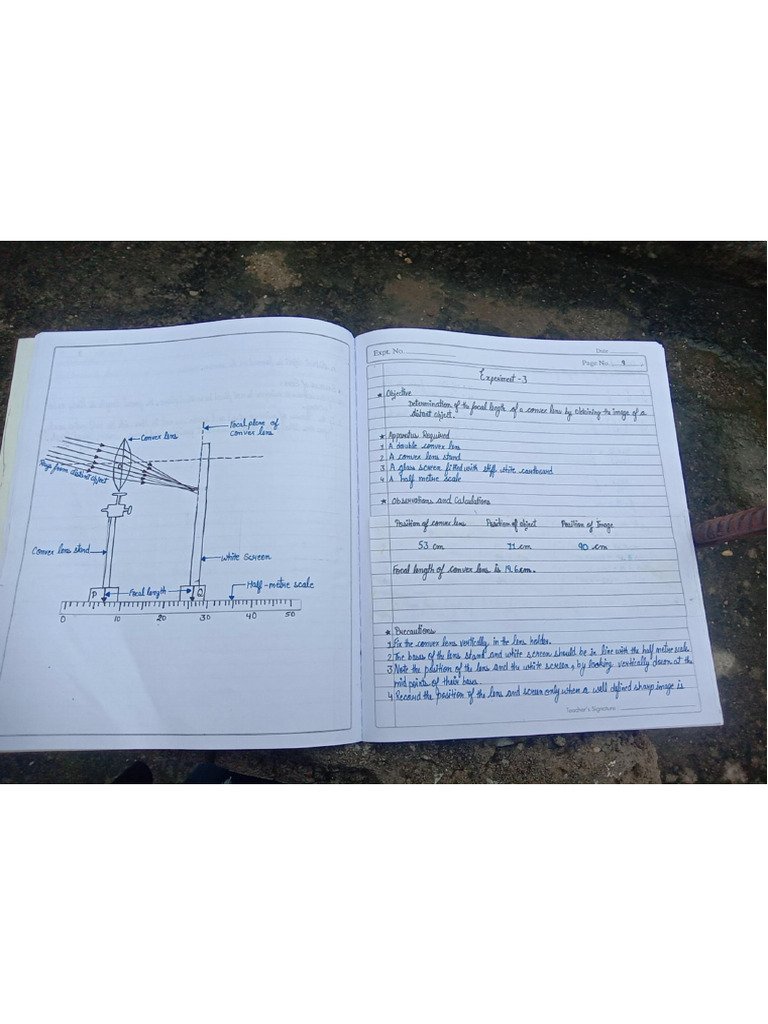 Focal plane of
convex lens
Convex lens
Rays from distant object
Convex lens stand
White Screen
Half-metre scale
P
Focal length
Q
0 10 20 30 40 50
Expt. No.
Date
Page No. 9
Experiment - 3
* Objective
Determination of the focal length of a convex lens by obtaining the image of a
distant object.
* Apparatus Required
1 A double convex lens
2 A convex lens stand
3 A glass screen fitted with stiff white cardboard
4 A half metre scale
* Observations and Calculations
Position of convex lens Position of object Position of Image
53 cm 71 cm 90 cm
Focal length of convex lens is cm.
* Precautions
1 Fix the convex lens vertically in the lens holder.
2 The bases of the lens stand and white screen should be in line with the half metre scale
3 Note the position of the lens and the white screen, by looking vertically down at the
mid points of their bases.
4 Record the position of the lens and screen only when a well defined sharp image is
Teacher's Signature